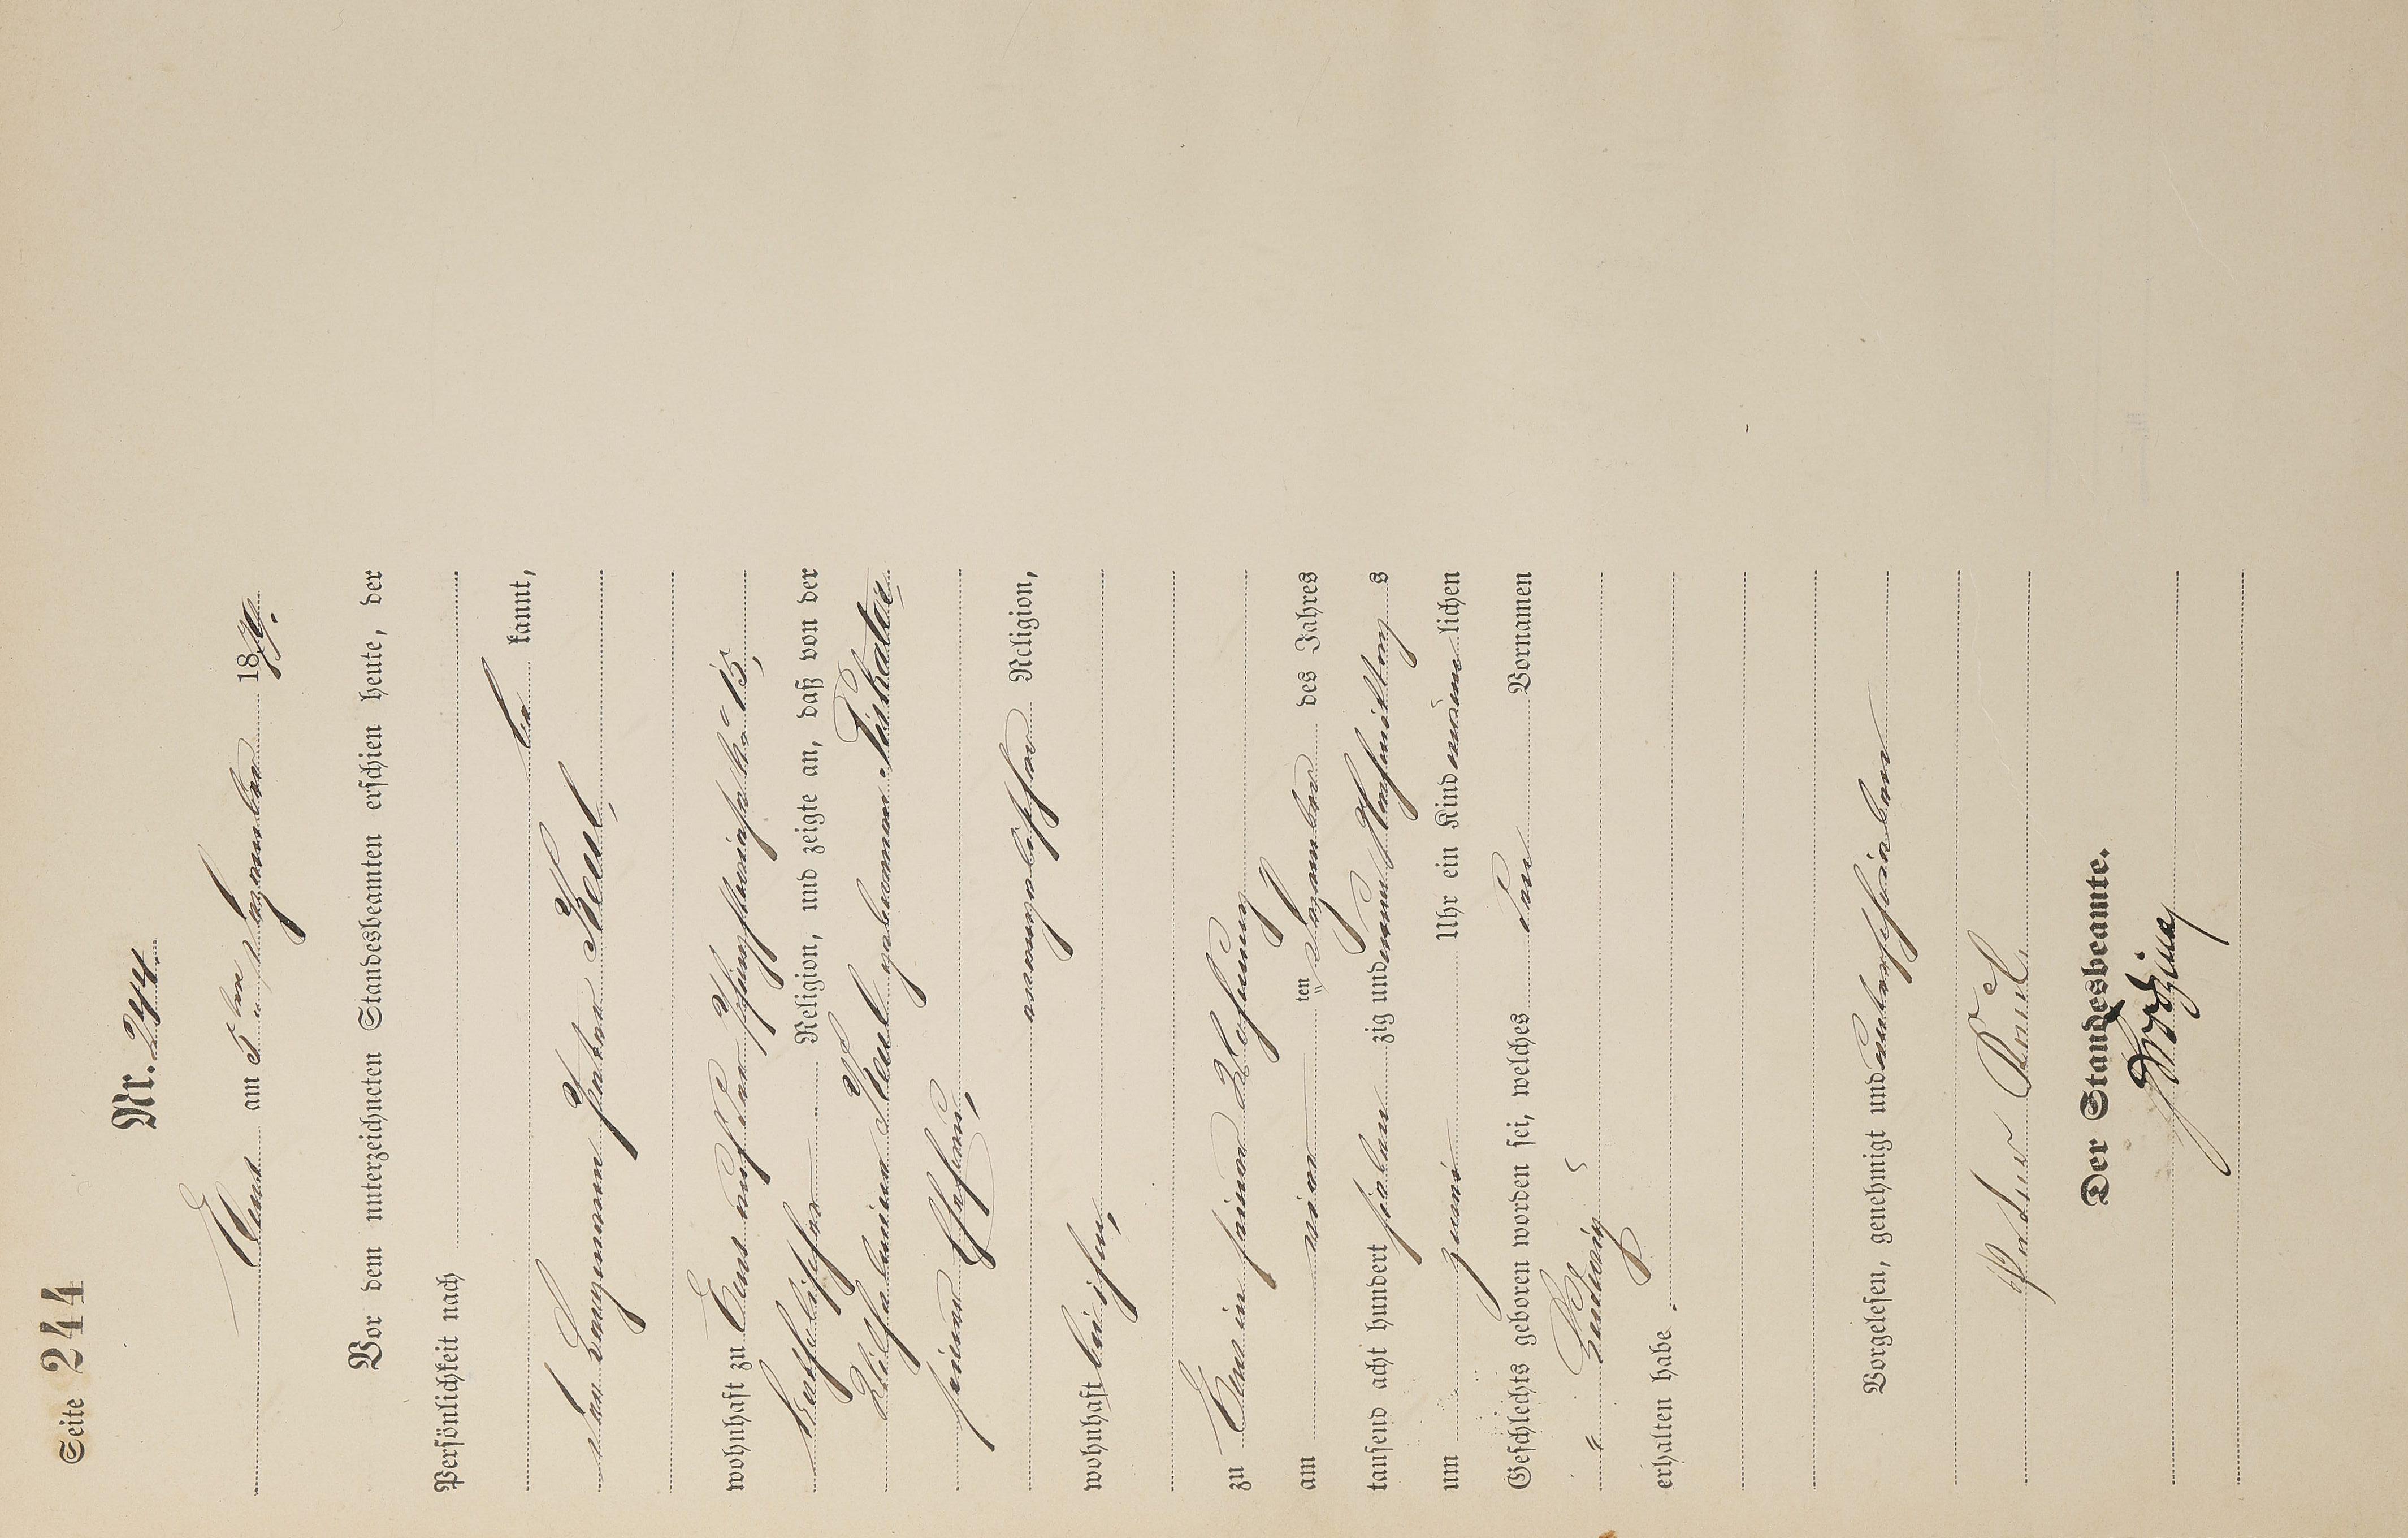 Seite 244
Nr. 244.
Ems am 5ten Dezember 1879.
Vor dem unterzeichneten Standesbeamten erschien heute, der
Persönlichkeit nach
be kannt,
der Bergmann Peter Keul,
wohnhaft zu Ems auf der
katholischer Religion, und zeigte an, daß von der
Wilhelmine Keul geborenen Piskator,
seiner Ehefrau,
evangelischer Religion,
wohnhaft bei ihm,
zu Ems in seiner Wohnung
am vier ten Dezember des Jahres
tausend acht hundert sieben zig und neun Nachmittag s
um zwei Uhr ein Kind männ lichen
Geschlechts geboren worden sei, welches den Vornamen
"Ludwig"
erhalten habe.
Vorgelesen, genehmigt und unterschrieben
Peter Keul
Der Standesbeamte.